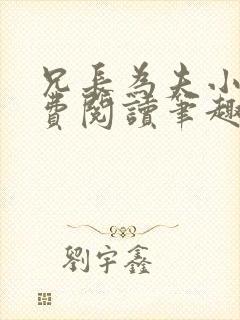 兄長為夫小
費閱讀筆趣
劉宇鑫